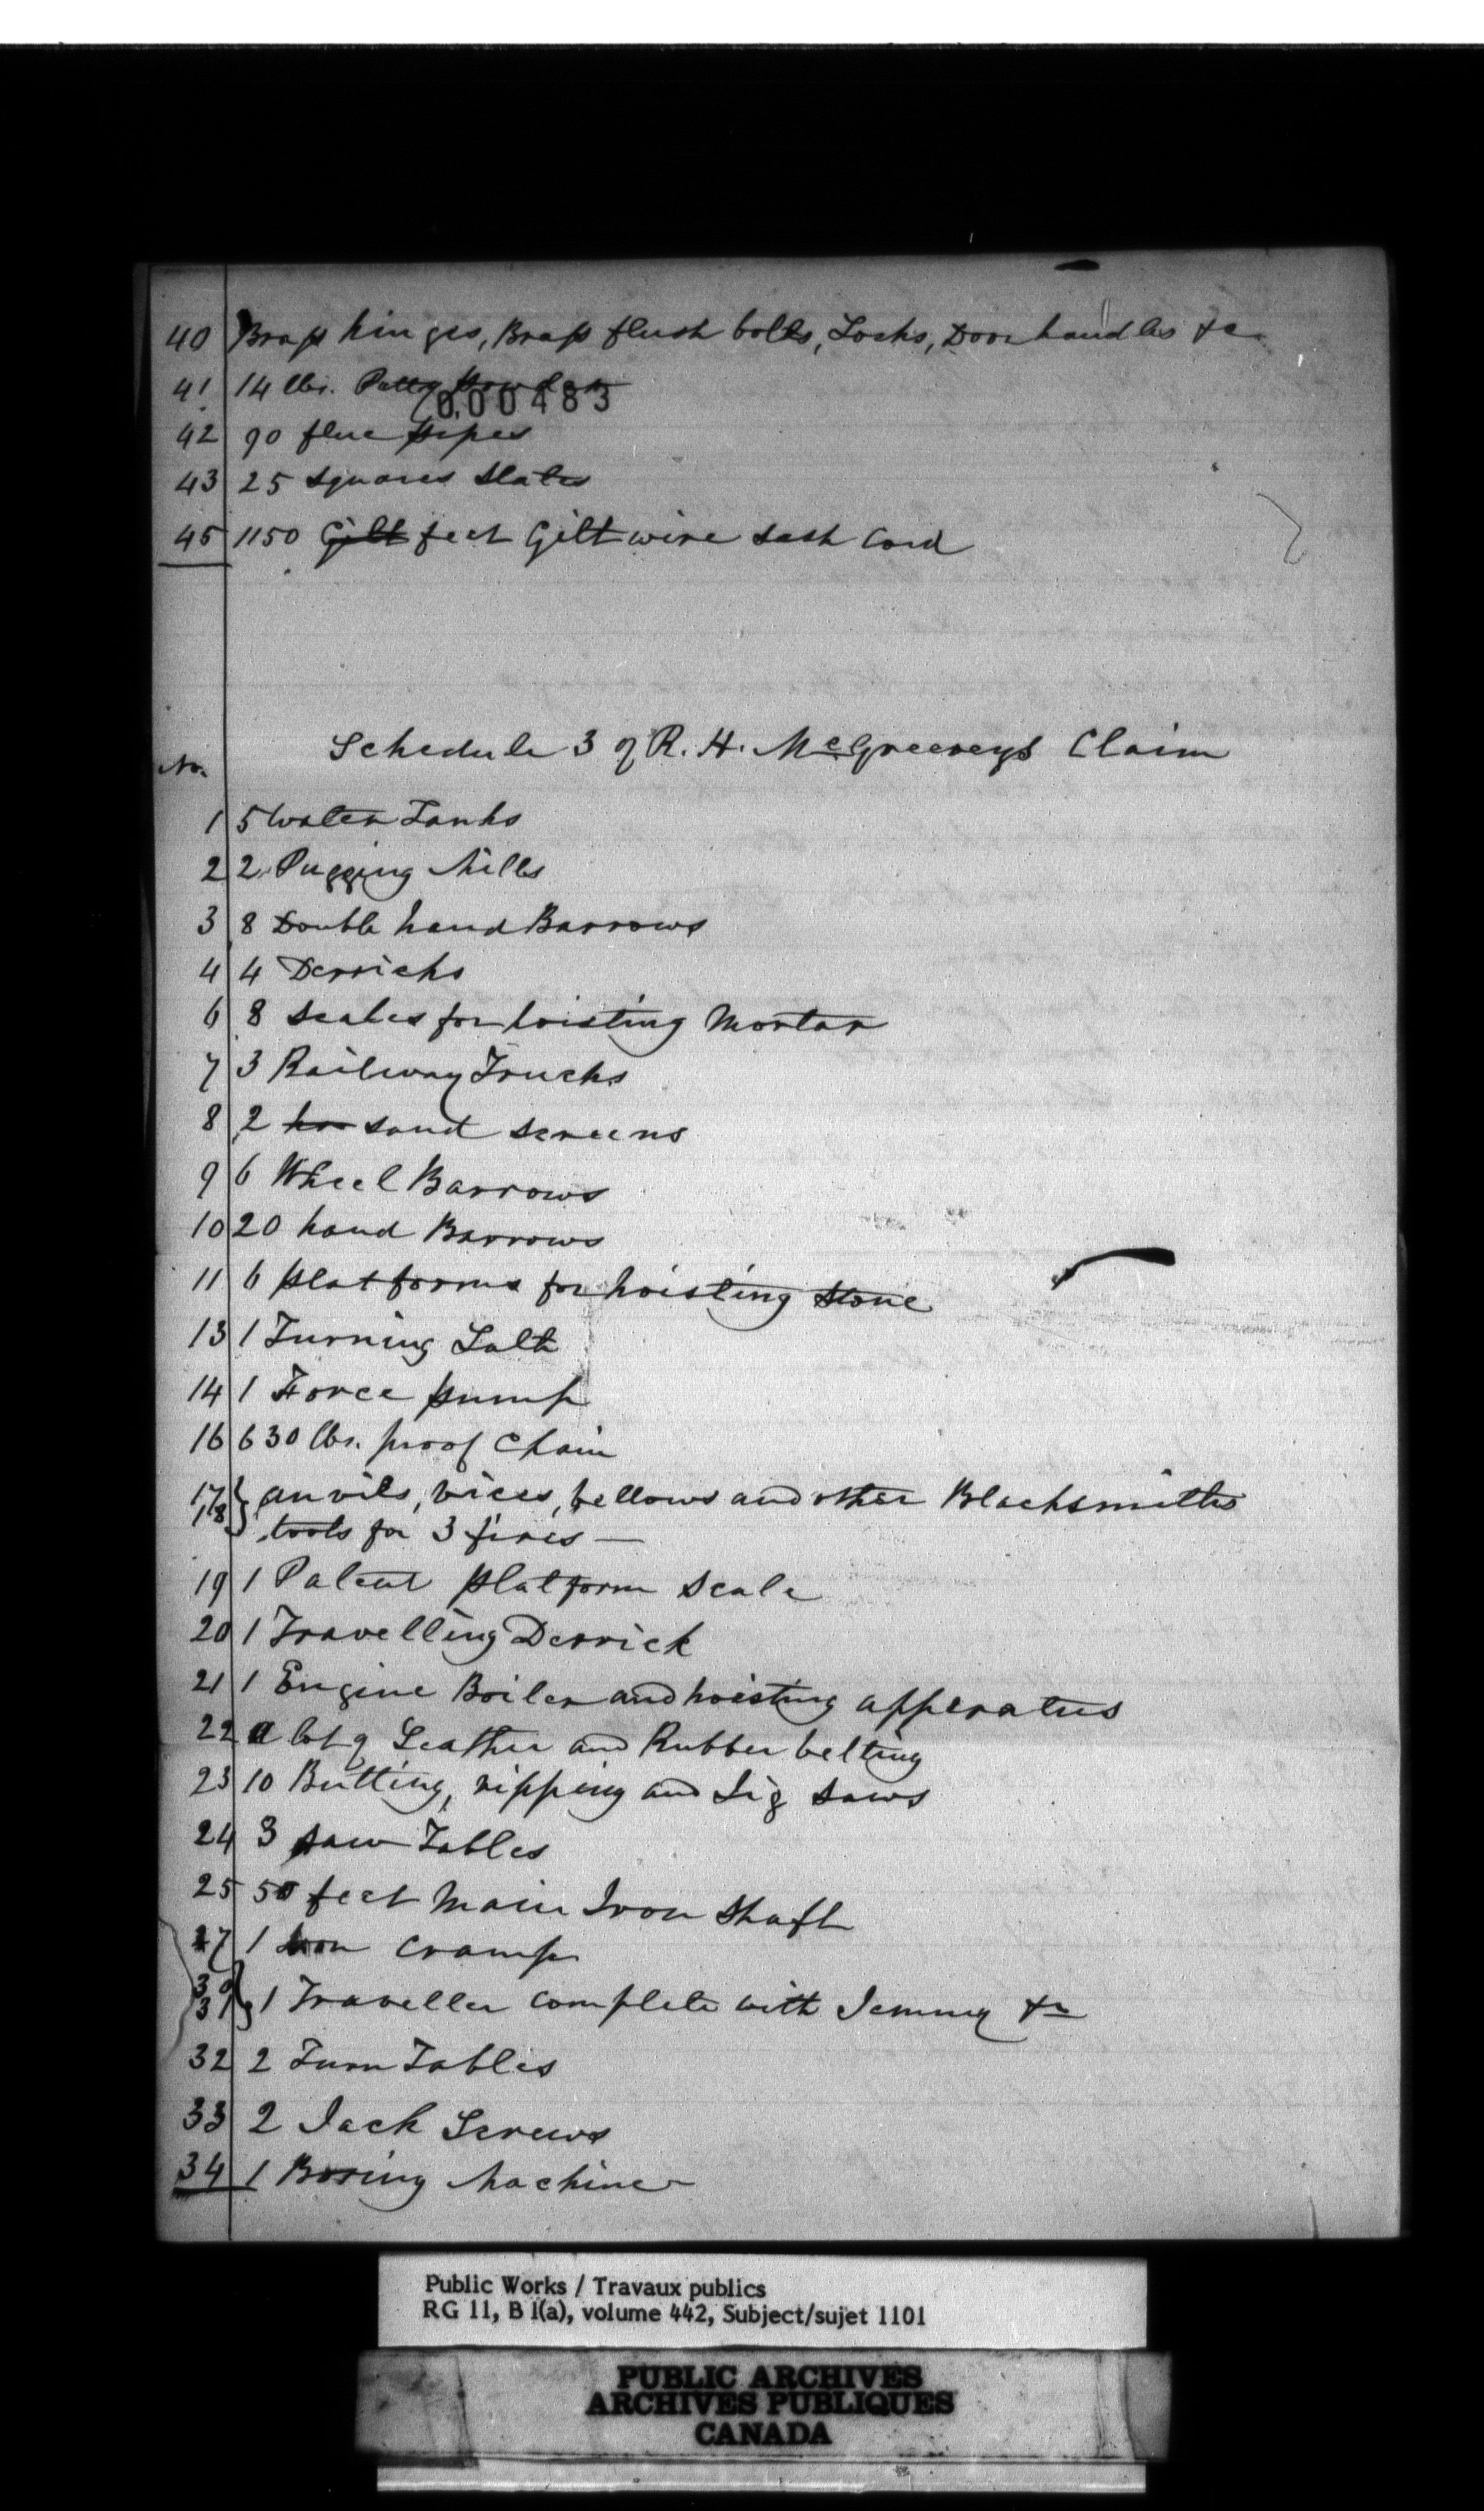 40 Brass hinges, Brass flush bolts, Locks, Door handles &c
41 14 lbs. Putty powder
000483
42 90 flue pipes
43 25 squares Slates
45 1150 Gilt feet Gilt wire sash Cord
Schedule 3 of R. H. McGreeveys Claim
No.
1 5 Water Tanks
2 2 Pugging Mills
3 8 Double hand Barrows
4 4 Derricks
6 8 Scales for hoisting Mortar
7 3 Railway Trucks
8 2 sand screens
9 6 Wheel Barrows
10 20 hand Barrows
11 6 platforms for hoisting stone
13 1 Turning Lath
14 1 Force pump
16 630 lbs. proof Chain
17 18 } anvils, vices, bellows and other Blacksmiths
tools for 3 fires —
19 1 Patent platform scale
20 1 Travelling Derrick
21 1 Engine Boiler and hoisting apperatus
22 a lot of Leather and Rubber belting
23 10 Butting, ripping and Jig saws
24 3 saw Tables
25 50 feet Main Iron Shaft
27 1 Iron Cramp
30 31 } 1 Traveller complete with Jemmy &c
32 2 Turn Tables
33 2 Jack Screws
34 1 Boring Machine
Public Works / Travaux publics
RG 11, B 1(a), volume 442, Subject/sujet 1101
PUBLIC ARCHIVES
ARCHIVES PUBLIQUES
CANADA